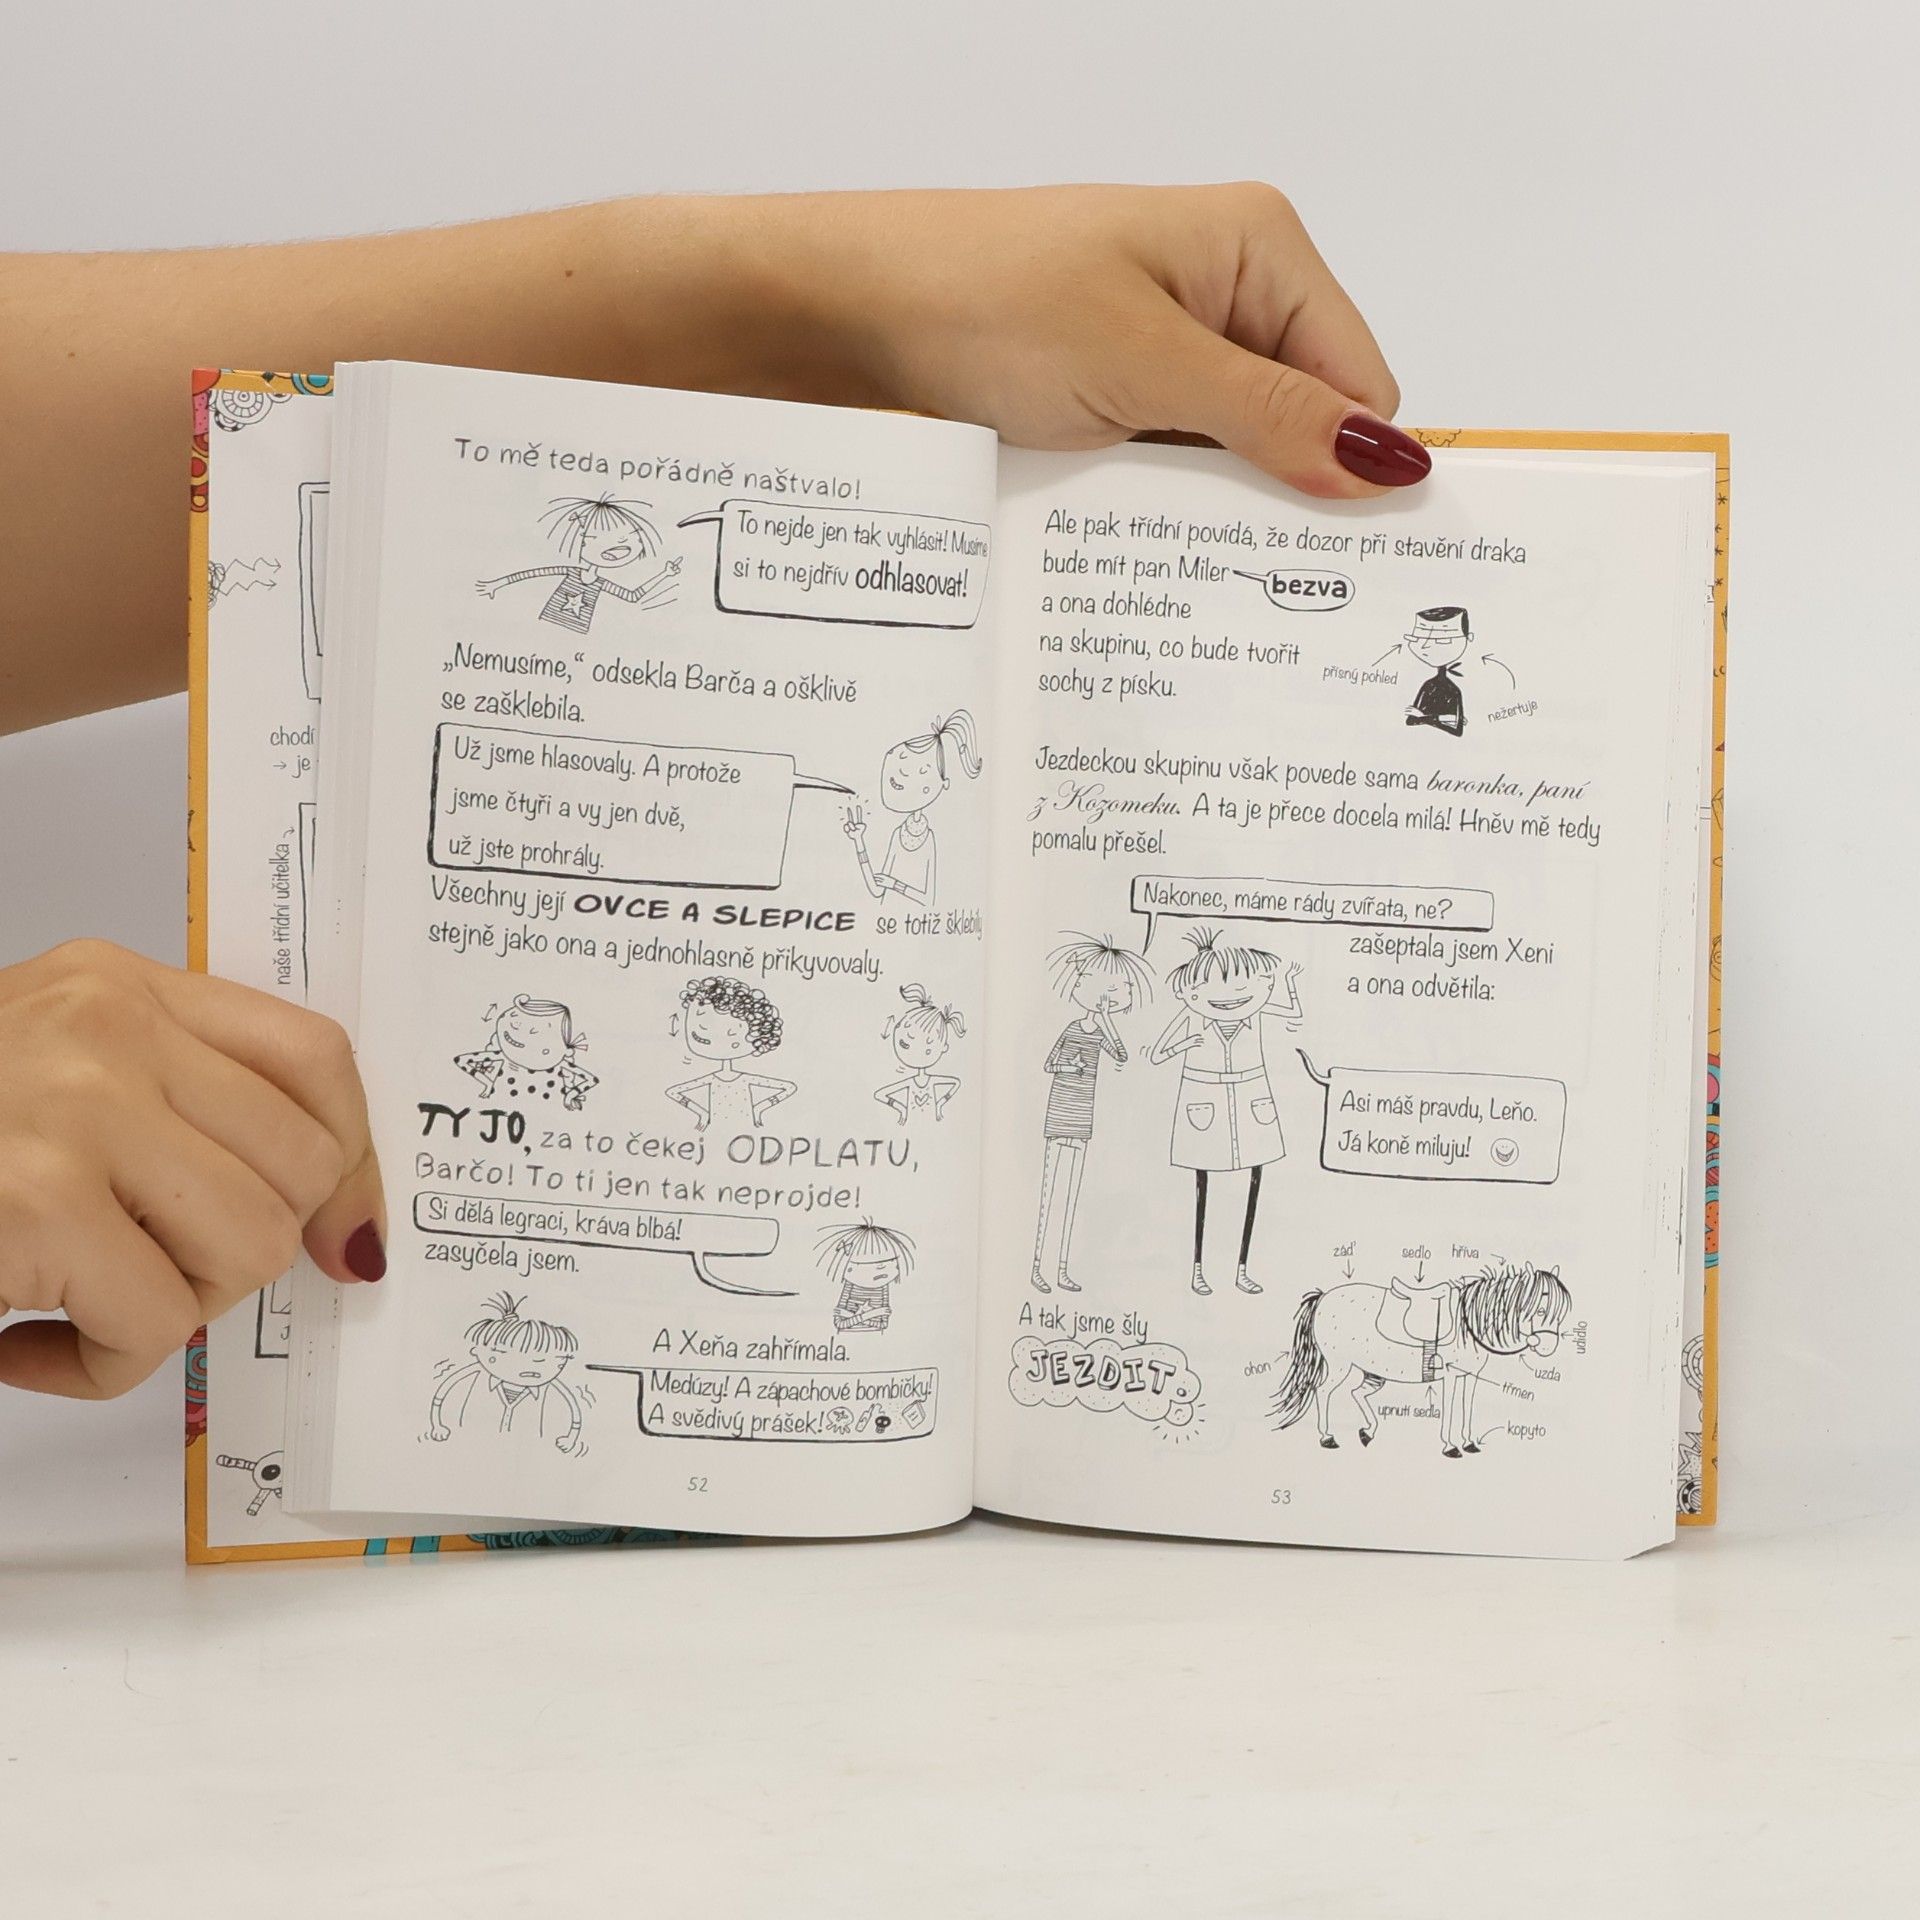 chodí
→ je
naše třídní učitelka
To mě teda pořádně naštvalo!
To nejde jen tak vyhlásit! Musíme
si to nejdřív odhlasovat!
„Nemusíme,“ odsekla Barča a ošklivě
se zašklebila.
Už jsme hlasovaly. A protože
jsme čtyři a vy jen dvě,
už jste prohrály.
Všechny její OVCE A SLEPICE se totiž šklebily
stejně jako ona a jednohlasně přikyvovaly.
TY JO, za to čekej ODPLATU,
Barčo! To ti jen tak neprojde!
Si dělá legraci, kráva blbá!
zasyčela jsem.
A Xeňa zahřímala.
Medúzy! A zápachové bombičky!
A svědivý prášek!
52
Ale pak třídní povídá, že dozor při stavění draka
bude mít pan Miler
bezva
a ona dohlédne
na skupinu, co bude tvořit
sochy z písku.
přísný pohled
nežertuje
Jezdeckou skupinu však povede sama baronka, paní
z Kozomeku. A ta je přece docela milá! Hněv mě tedy
pomalu přešel.
Nakonec, máme rády zvířata, ne?
zašeptala jsem Xeni
a ona odvětila:
Asi máš pravdu, Leňo.
Já koně miluju!
A tak jsme šly
JEZDIT.
záď
sedlo
hříva
udidlo
uzda
ohon
třmen
upnutí sedla
kopyto
53